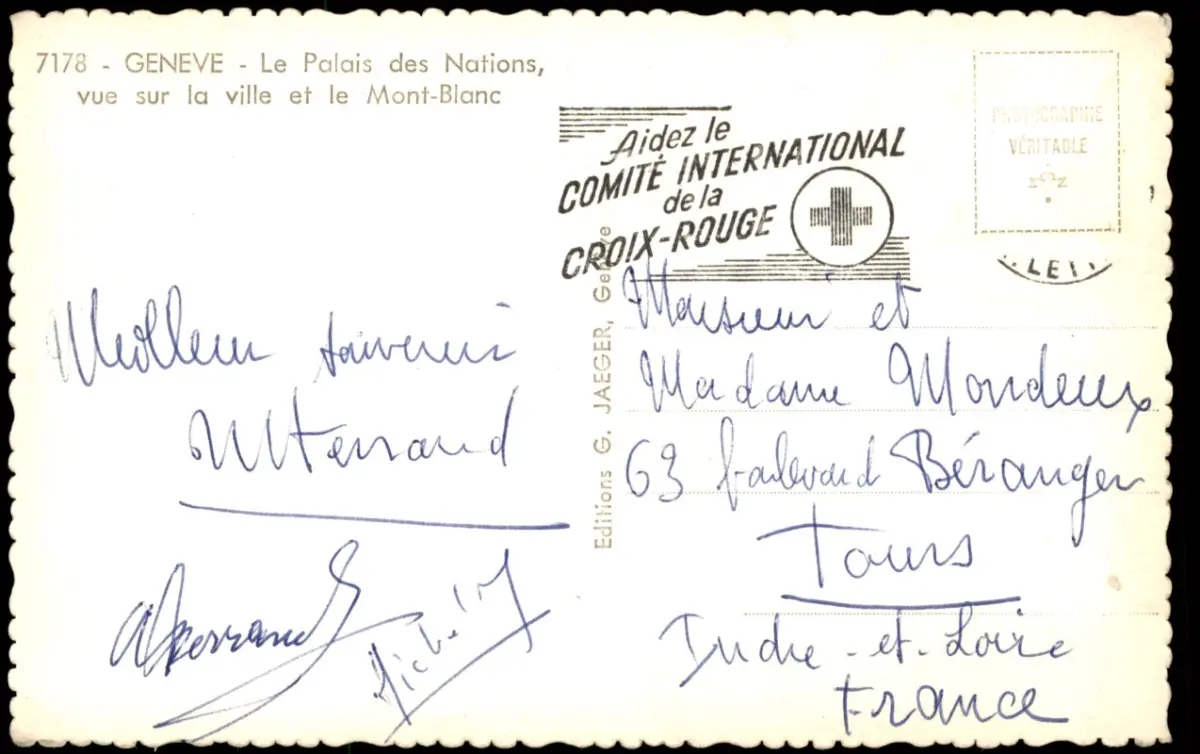 7178 - GENEVE - Le Palais des Nations,
vue sur la ville et le Mont-Blanc
Aidez le
COMITÉ INTERNATIONAL
de la
CROIX-ROUGE
PHOTOGRAPHIE
VÉRITABLE
Editions G. JAEGER, Genève
Meilleur souvenir
Monsieur et
Madame Mondeux
63 boulevard Béranger
Tours
Indre-et-Loire
France